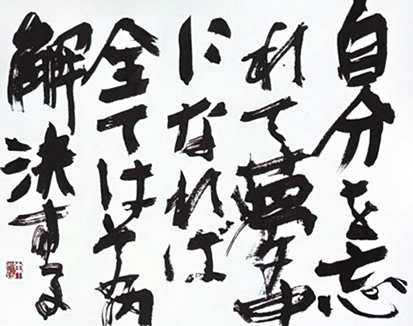 自分を忘
れて夢中
になれば
全てはその内
解決する